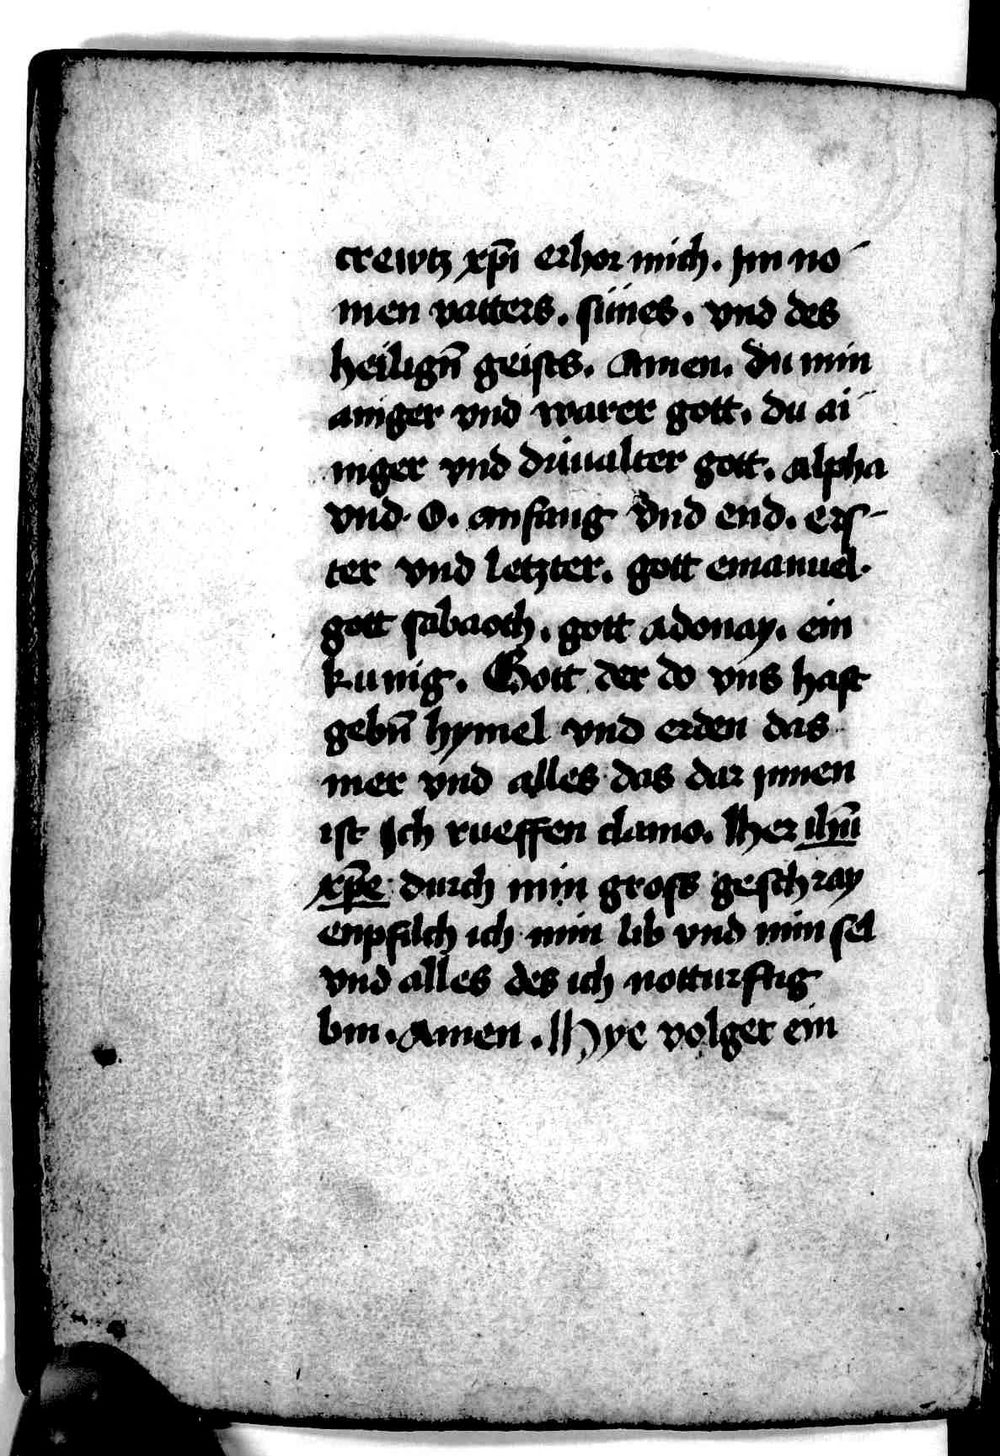 crewtz xp̄i erhor mich. Jm no-
men vatters. sünes. vnd des
heilign̄ geists. Amen. du min
ainger vnd warer gott. du ai-
niger vnd driualter gott. alpha
vnd. O. anfang vnd end. ers-
ter vnd letzter. gott emanuel.
gott sabaoth. gott adonay. ein
kunig. Gott der do vns hast
gebn̄ hymel vnd erden das
mer vnd alles das dar jnnen
ist Jch rueffen clamo. Her ihū
xp̄e durch min gross geschray
enpfilch ich min lib vnd min sel
vnd alles des ich notturftig
bin. Amen. Hye volget ein